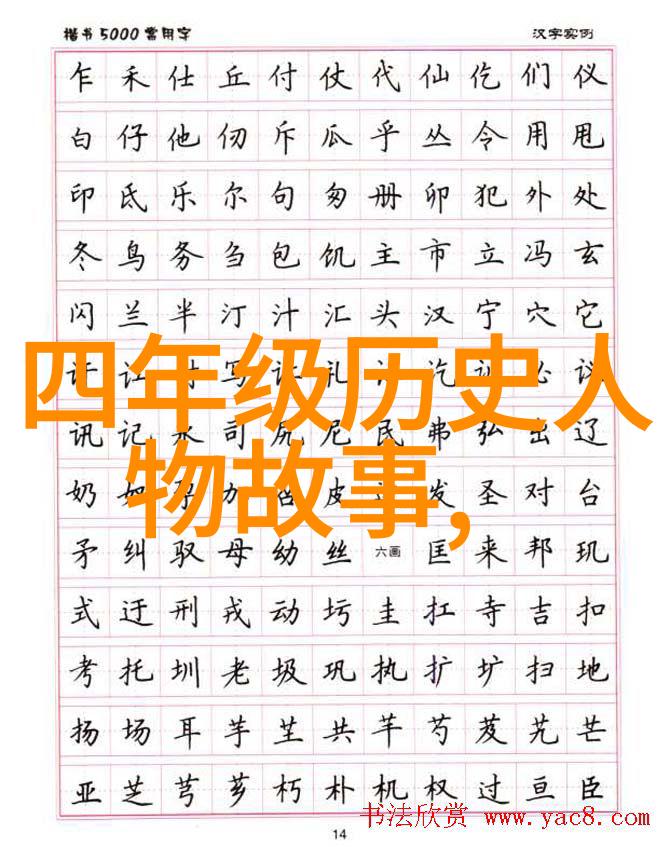 楷书5000常用字 汉字实例
乍禾仕丘付仗代仙仡们仪
白仔他仞斥瓜乎丛令用甩
印氐乐尔句匆册卯犯外处
冬鸟务刍包饥主市立冯玄
闪兰半汀汁汇头汉宁穴它
写礼必议
四年级历史人
讯记永司尻尼民弗弘出辽
奶孕加皮发圣对台
物故事,
矛纠驭母幼丝六画匡耒邦玑
式迂刑戎动圬圭扛寺吉扣
考托圳老圾巩执扩圹扫地
扬场耳芋芏共芊芍芨艽芒
亚芝芎芗朽朴机权过亘臣
书法欣赏 www.yac8.com
14